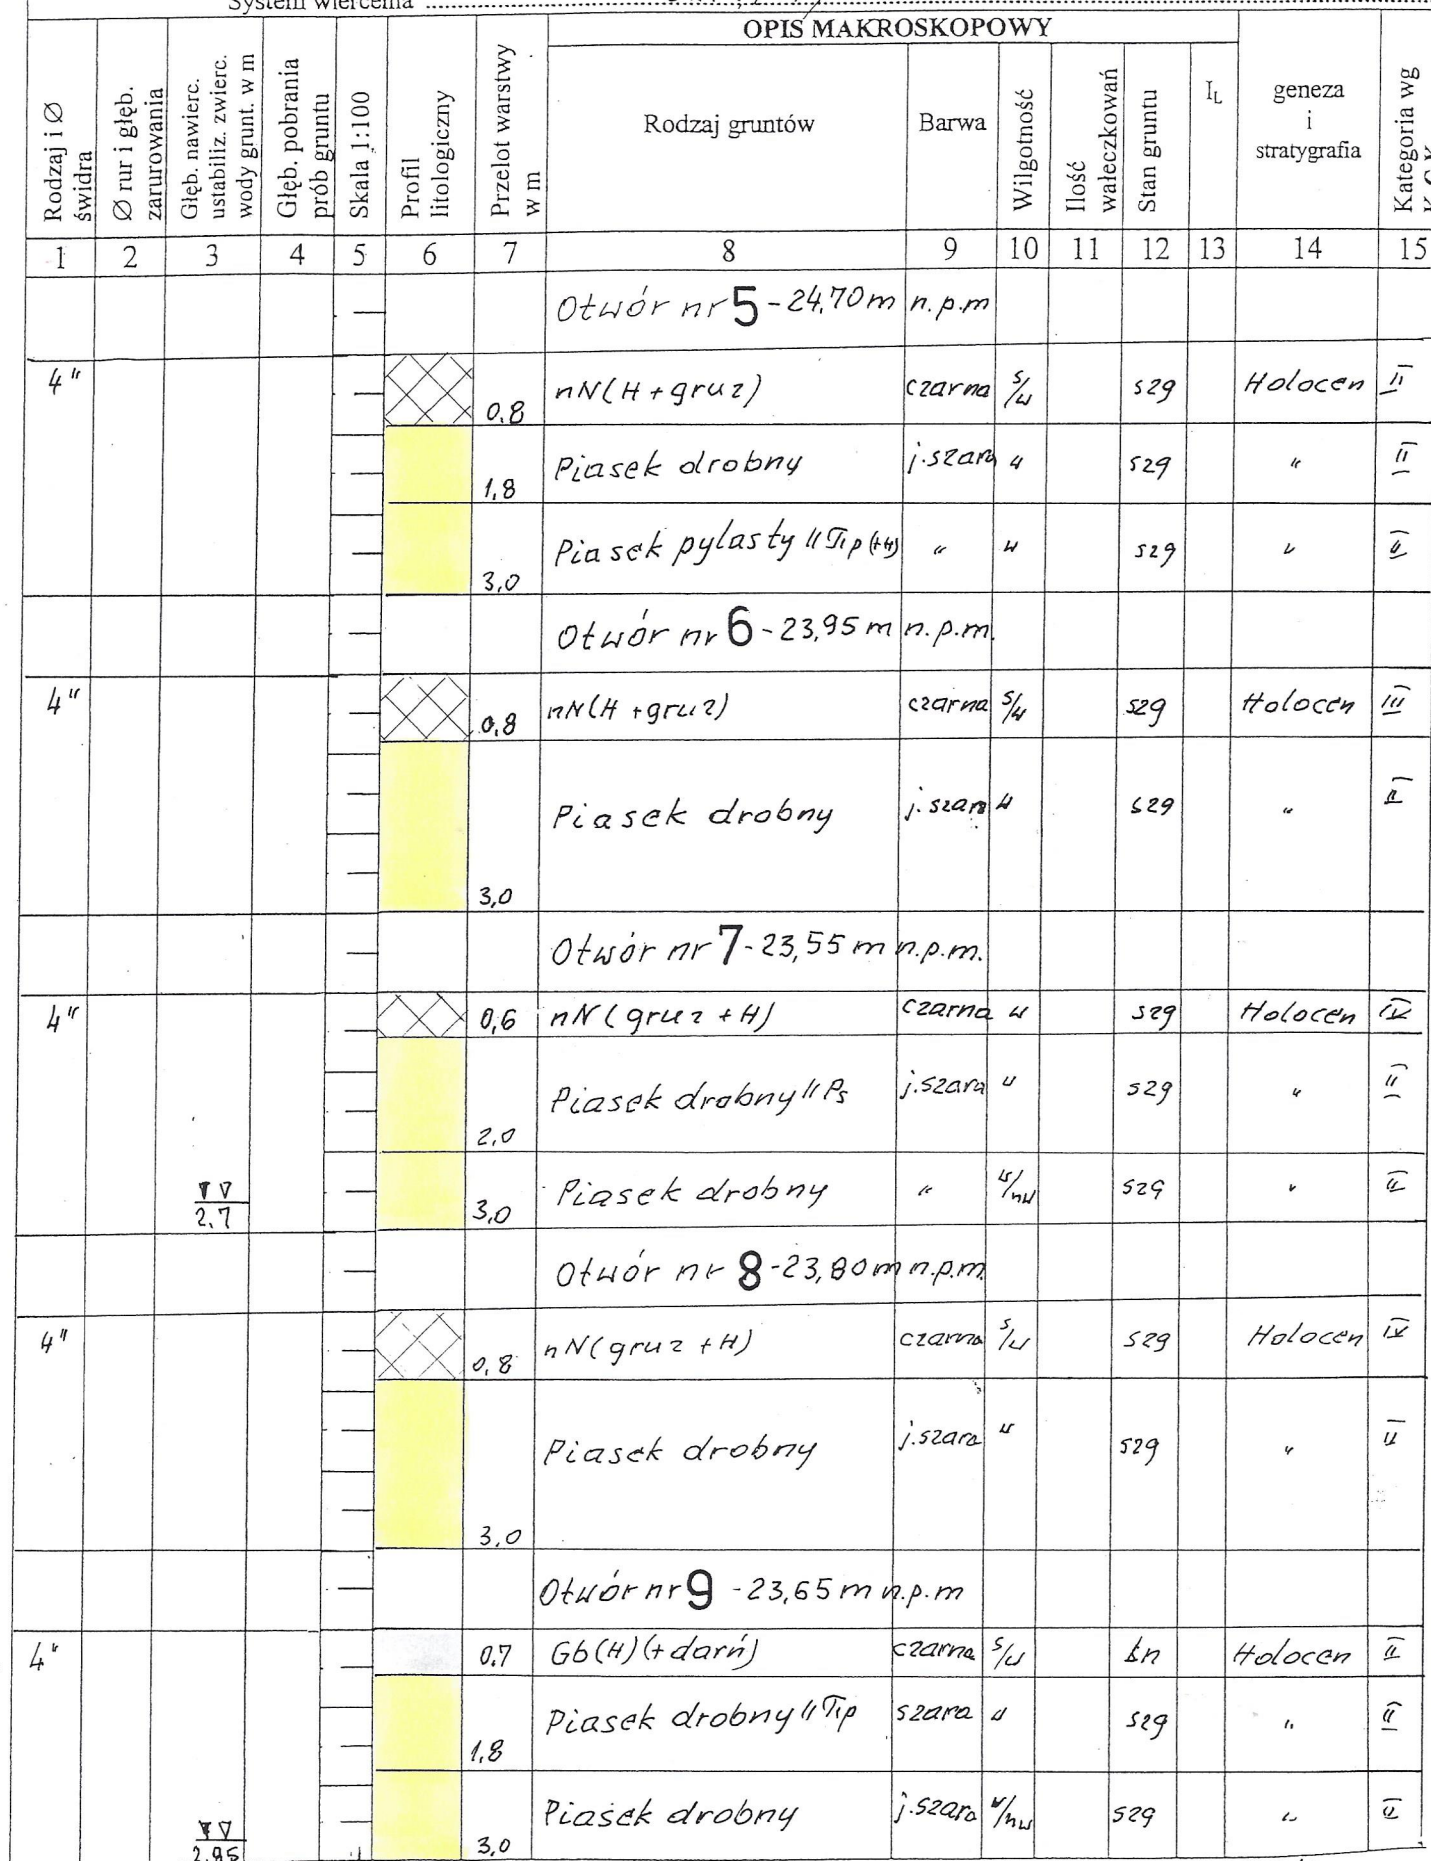 System wiercenia
OPIS MAKROSKOPOWY
Rodzaj i Ø świdra
Ø rur i głęb. zarurowania
Głęb. nawierc. ustabiliz. zwierc. wody grunt. w m
Głęb. pobrania prób gruntu
Skala 1:100
Profil litologiczny
Przelot warstwy w m
Rodzaj gruntów
Barwa
Wilgotność
Ilość wałeczkowań
Stan gruntu
I_L
geneza i stratygrafia
Kategoria wg
1 2 3 4 5 6 7 8 9 10 11 12 13 14 15
Otwór nr 5 - 24,70 m n.p.m
4" 0,8 nN(H + gruz) czarna s/w szg Holocen II
1,8 Piasek drobny j.szara w szg " II
3,0 Piasek pylasty // Πp (+H) " w szg " II
Otwór nr 6 - 23,95 m n.p.m.
4" 0,8 nN(H + gruz) czarna s/w szg Holocen III
3,0 Piasek drobny j.szara w szg " II
Otwór nr 7 - 23,55 m n.p.m.
4" 0,6 nN(gruz + H) czarna w szg Holocen IV
2,0 Piasek drobny // Ps j.szara w szg " II
2.7 3,0 Piasek drobny " w/nw szg " II
Otwór nr 8 - 23,80 m n.p.m.
4" 0,8 nN(gruz + H) czarna s/w szg Holocen IV
3,0 Piasek drobny j.szara w szg " II
Otwór nr 9 - 23,65 m n.p.m
4" 0.7 Gb(H)(+ darń) czarna s/w ln Holocen II
1,8 Piasek drobny // Πp szara w szg " II
2.95 3,0 Piasek drobny j.szara w/nw szg " II